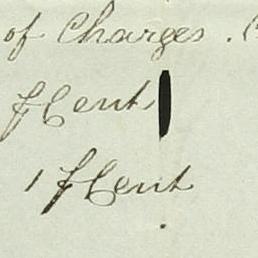 of Charges.
⅌ Cent
1 ⅌ Cent